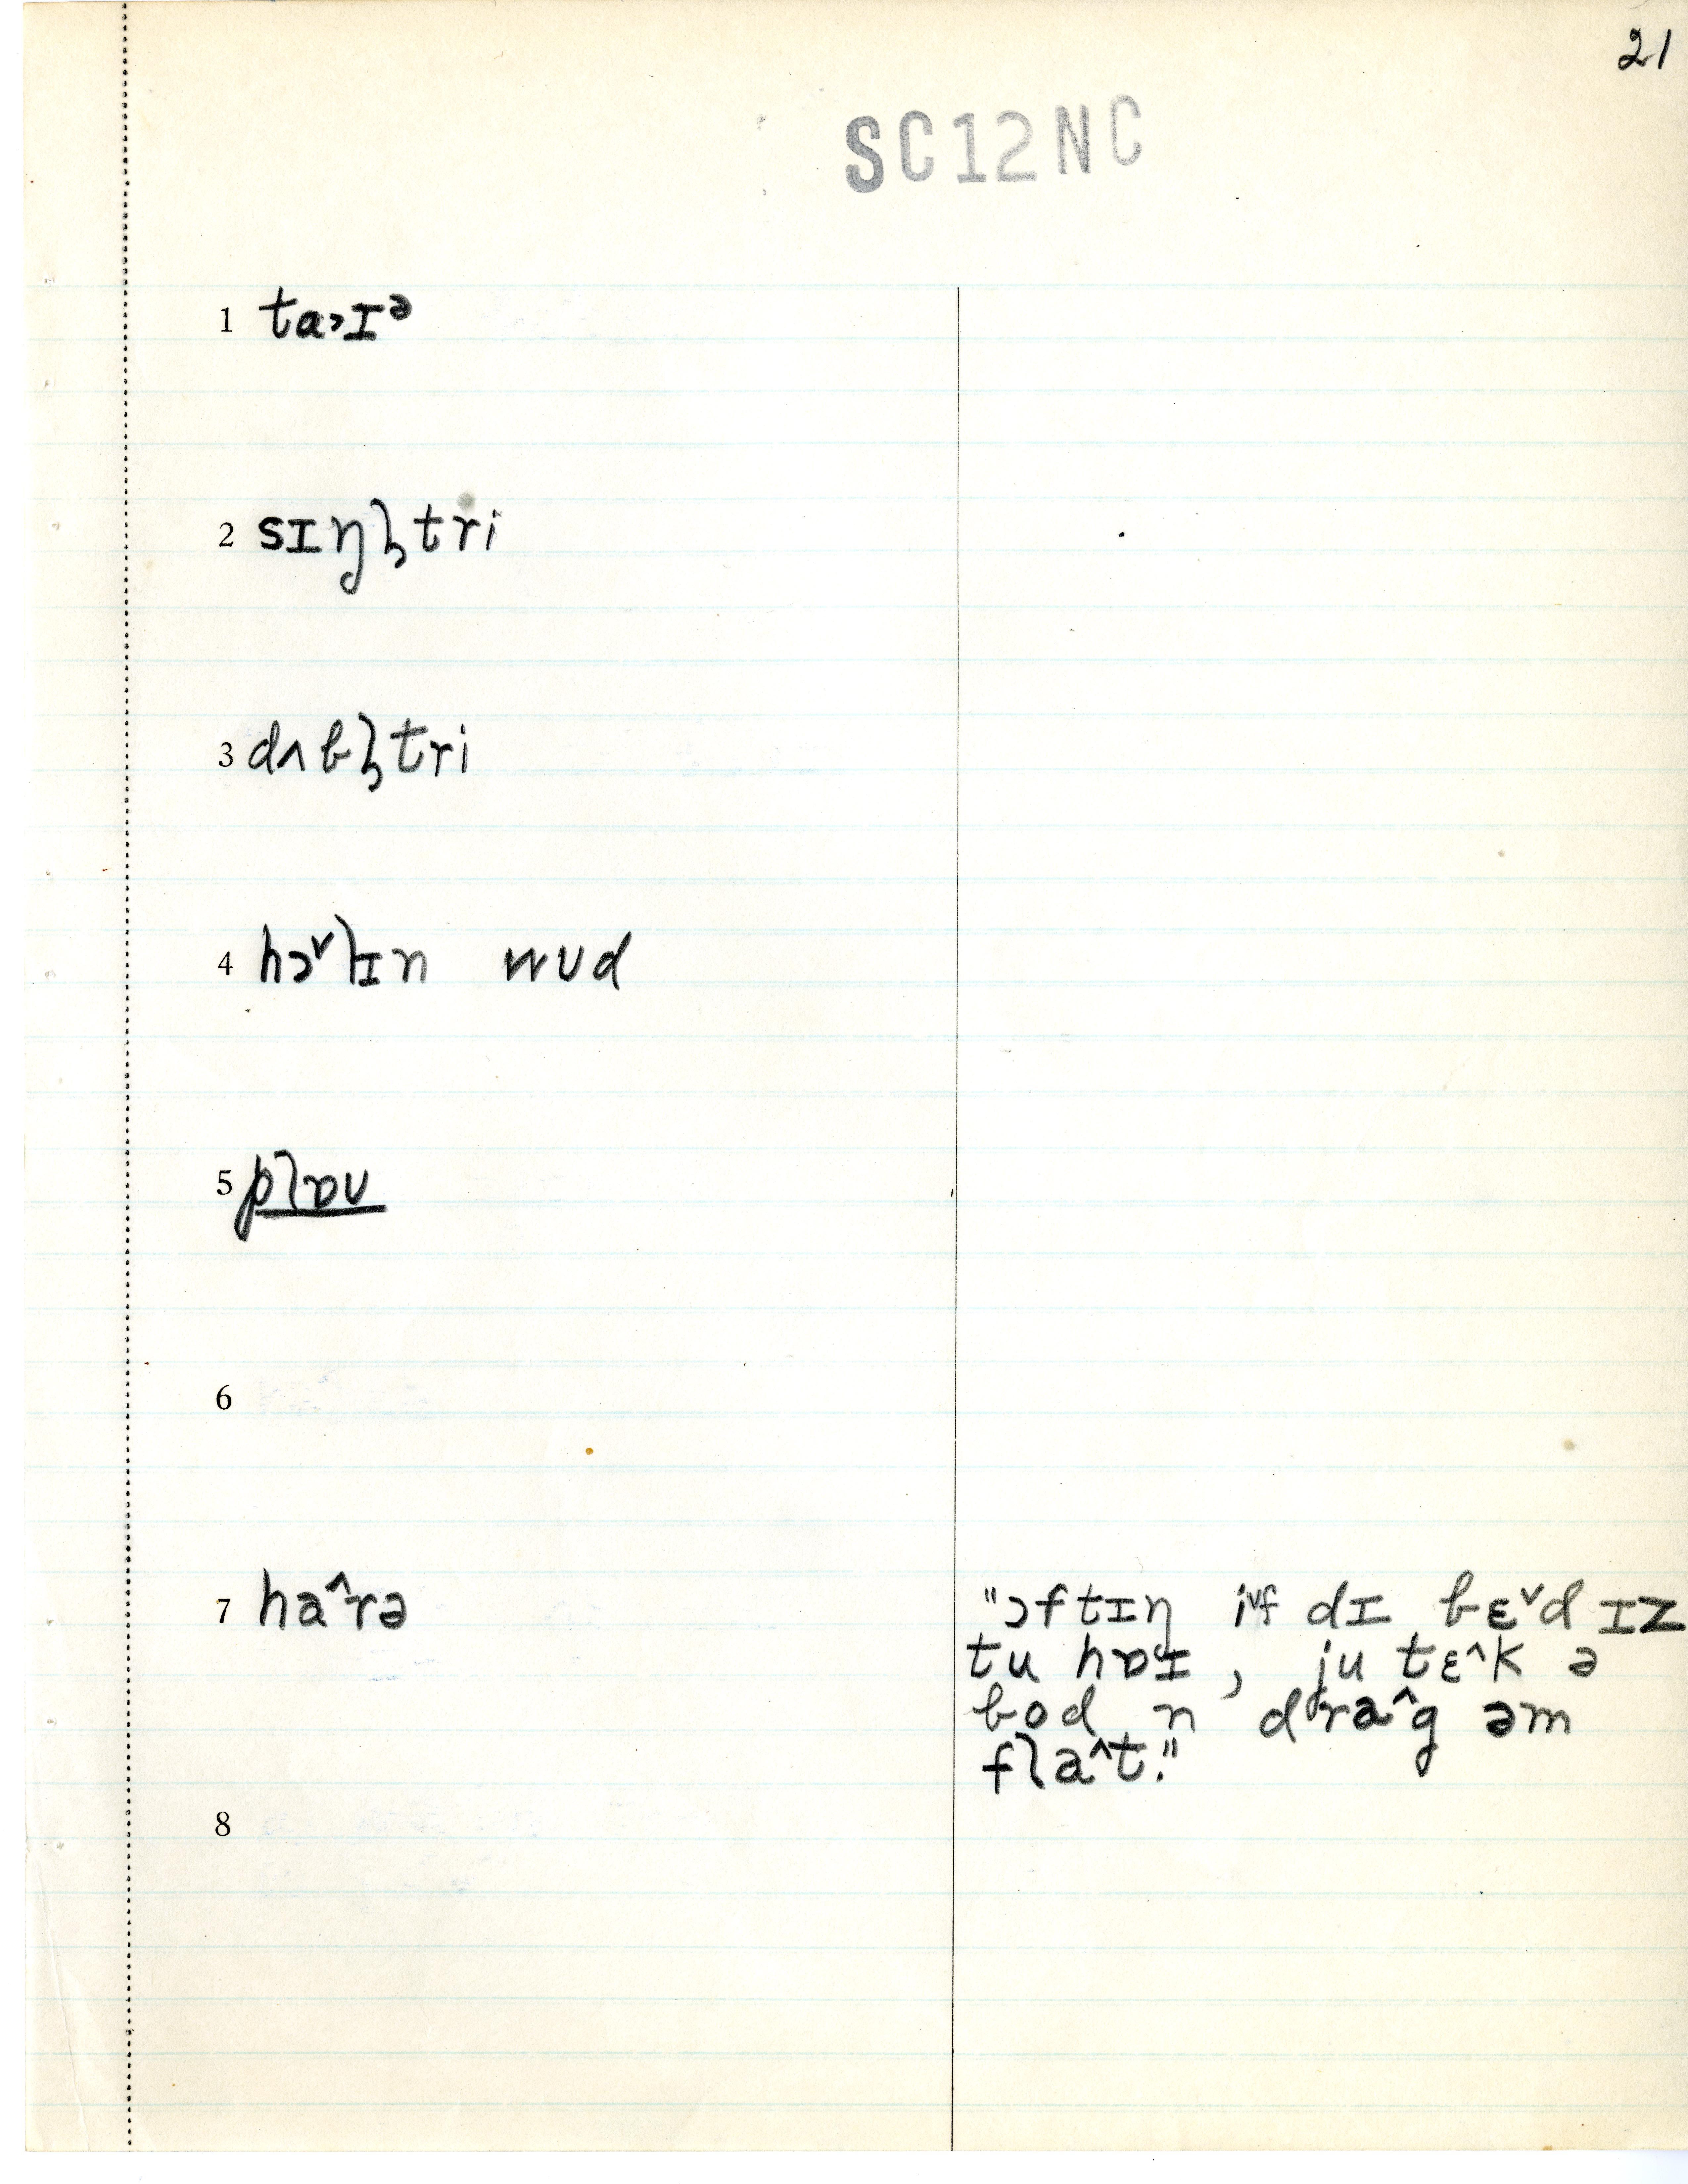 21
SC12NC
1 ta˃ɪᵊ
2 sɪŋɫ̩tri
3 dʌbɫ̩tri
4 hɔ˅lɪn wʊd
5 plɒʊ
6
7 ha^rə
"ɔftɪŋ i˅f dɪ bɛ˅d ɪz
tu hɒɪ, ju tɛ^k ə
bod n dra^g əm
fla^t."
8